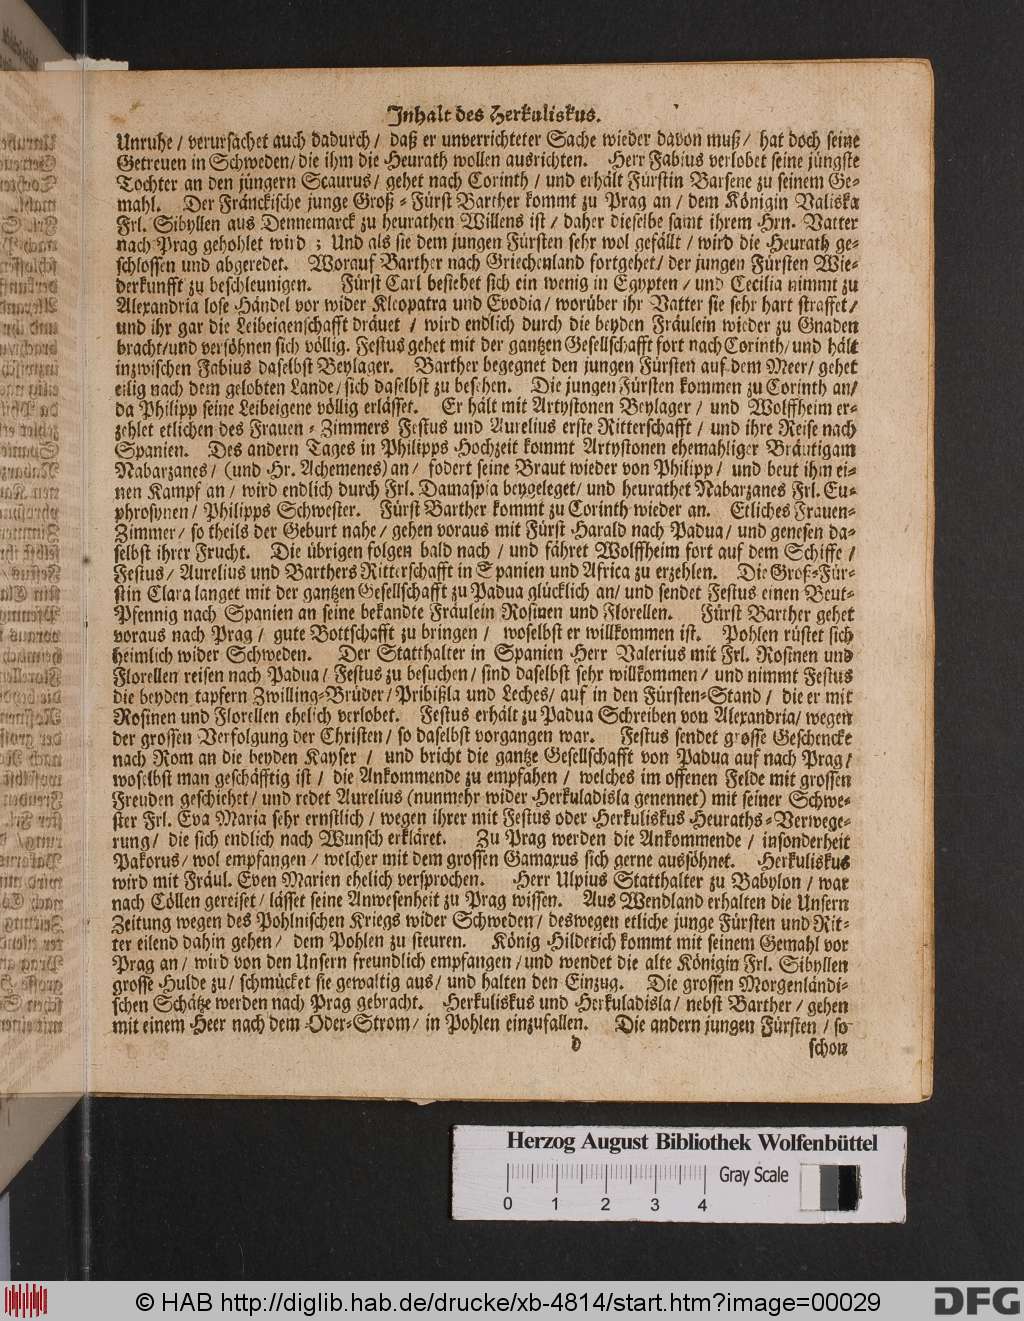 Inhalt des Herkuliskus.
Unruhe / verursachet auch dadurch / daß er unverrichteter Sache wieder davon muß / hat doch seine
Getreuen in Schweden / die ihm die Heurath wollen ausrichten. Herr Fabius verlobet seine jüngste
Tochter an den jüngern Scaurus / gehet nach Corinth / und erhält Fürstin Barsene zu seinem Ge-
mahl. Der Fränckische junge Groß-Fürst Barther kommt zu Prag an / dem Königin Valiska
Frl. Sibyllen aus Dennemarck zu heurathen Willens ist / daher dieselbe samt ihrem Hrn. Vatter
nach Prag gehohlet wird ; Und als sie dem jungen Fürsten sehr wol gefällt / wird die Heurath ge-
schlossen und abgeredet. Worauf Barther nach Griechenland fortgehet / der jungen Fürsten Wie-
derkunfft zu beschleunigen. Fürst Carl besiehet sich ein wenig in Egypten / und Cecilia nimmt zu
Alexandria lose Händel vor wider Kleopatra und Evodia / worüber ihr Vatter sie sehr hart straffet /
und ihr gar die Leibeigenschafft dräuet / wird endlich durch die beyden Fräulein wieder zu Gnaden
bracht / und versöhnen sich völlig. Festus gehet mit der gantzen Gesellschafft fort nach Corinth / und hält
inzwischen Fabius daselbst Beylager. Barther begegnet den jungen Fürsten auf dem Meer / gehet
eilig nach dem gelobten Lande / sich daselbst zu besehen. Die jungen Fürsten kommen zu Corinth an /
da Philipp seine Leibeigene völlig erlässet. Er hält mit Artystonen Beylager / und Wolffheim er-
zehlet etlichen des Frauen-Zimmers Festus und Aurelius erste Ritterschafft / und ihre Reise nach
Spanien. Des andern Tages in Philipps Hochzeit kommt Artystonen ehemahliger Bräutigam
Nabarzanes / (und Hr. Achemenes) an / fodert seine Braut wieder von Philipp / und beut ihm ei-
nen Kampf an / wird endlich durch Frl. Damaspia beygeleget / und heurathet Nabarzanes Frl. Eu-
phrosynen / Philipps Schwester. Fürst Barther kommt zu Corinth wieder an. Etliches Frauen-
Zimmer / so theils der Geburt nahe / gehen voraus mit Fürst Harald nach Padua / und genesen da-
selbst ihrer Frucht. Die übrigen folgen bald nach / und fähret Wolffheim fort auf dem Schiffe /
Festus / Aurelius und Barthers Ritterschafft in Spanien und Africa zu erzehlen. Die Groß-Für-
stin Clara langet mit der gantzen Gesellschafft zu Padua glücklich an / und sendet Festus einen Beut-
Pfennig nach Spanien an seine bekandte Fräulein Rosinen und Florellen. Fürst Barther gehet
voraus nach Prag / gute Bottschafft zu bringen / woselbst er willkommen ist. Pohlen rüstet sich
heimlich wider Schweden. Der Statthalter in Spanien Herr Valerius mit Frl. Rosinen und
Florellen reisen nach Padua / Festus zu besuchen / sind daselbst sehr willkommen / und nimmt Festus
die beyden tapfern Zwilling-Brüder / Pribißla und Leches / auf in den Fürsten-Stand / die er mit
Rosinen und Florellen ehelich verlobet. Festus erhält zu Padua Schreiben von Alexandria / wegen
der grossen Verfolgung der Christen / so daselbst vorgangen war. Festus sendet grosse Geschencke
nach Rom an die beyden Kayser / und bricht die gantze Gesellschafft von Padua auf nach Prag /
woselbst man geschäfftig ist / die Ankommende zu empfahen / welches im offenen Felde mit grossen
Freuden geschiehet / und redet Aurelius (nunmehr wider Herkuladisla genennet) mit seiner Schwe-
ster Frl. Eva Maria sehr ernstlich / wegen ihrer mit Festus oder Herkuliskus Heuraths-Verwege-
rung / die sich endlich nach Wunsch erkläret. Zu Prag werden die Ankommende / insonderheit
Pakorus / wol empfangen / welcher mit dem grossen Gamaxus sich gerne aussöhnet. Herkuliskus
wird mit Fräul. Even Marien ehelich versprochen. Herr Ulpius Statthalter zu Babylon / war
nach Cöllen gereiset / lässet seine Anwesenheit zu Prag wissen. Aus Wendland erhalten die Unsern
Zeitung wegen des Pohlnischen Kriegs wider Schweden / deswegen etliche junge Fürsten und Rit-
ter eilend dahin gehen / dem Pohlen zu steuren. König Hilderich kommt mit seinem Gemahl vor
Prag an / wird von den Unsern freundlich empfangen / und wendet die alte Königin Frl. Sibyllen
grosse Hulde zu / schmücket sie gewaltig aus / und halten den Einzug. Die grossen Morgenländi-
schen Schätze werden nach Prag gebracht. Herkuliskus und Herkuladisla / nebst Barther / gehen
mit einem Heer nach dem Oder-Strom / in Pohlen einzufallen. Die andern jungen Fürsten / so
d schon
Herzog August Bibliothek Wolfenbüttel
Gray Scale
0 1 2 3 4
© HAB http://diglib.hab.de/drucke/xb-4814/start.htm?image=00029
DFG